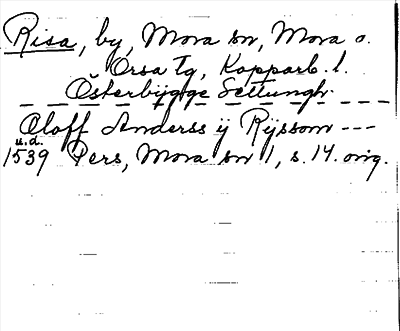 Risa, by, Mora sn, Mora o.
Orsa tg, Kopparb. l.
Österbygge Settungh.
Oloff Anderss ÿ Rÿssom ---
u.d.
1539 Pers, Mora sn 1, s. 14. orig.